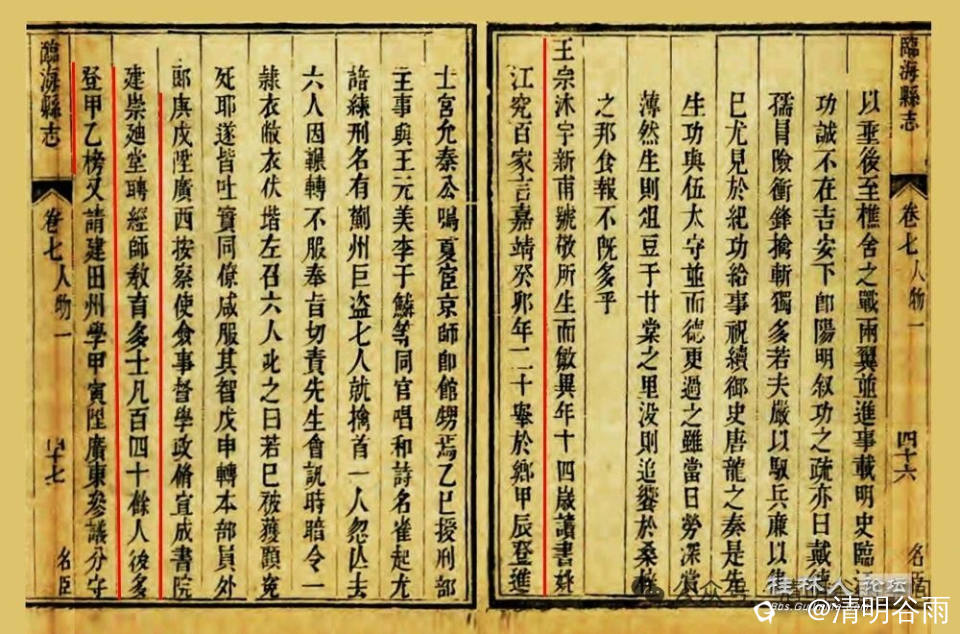 臨海縣志
卷七 人物一
四十六 名臣
以垂後至樵舍之戰兩翼並進事載明史臨江
功誠不在吉安下卽陽明叙功之疏亦曰戴德
孺冒險衝鋒擒斬獨多若夫嚴以馭兵廉以
巳尤見於紀功給事祝續御史唐龍之奏是先
生功與伍太守並而德更過之雖當日勞深賞
薄然生則俎豆于甘棠之里没則追饗於桑梓
之邦食報不旣多乎
王宗沐字新甫號敬所生而歧異年十四歲讀書
江究百家言嘉靖癸卯年二十舉於鄉甲辰登進
士宮允秦公鳴夏宦京師卽館甥焉乙巳授刑部
主事與王元美李于鱗等同官唱和詩名雀起尤
諳練刑名有薊州巨盜七人就擒首一人忽亾去
六人因輾轉不服奉旨切責先生會訊時暗令一
隸衣敝衣伏堦左召六人叱之曰若巳被獲頋竟
死耶遂皆吐實同僚咸服其智戊申轉本部員外
郎庚戌陞廣西按察使僉事督學政脩宣成書院
建崇廸堂聘經師敎育多士凡百四十餘人後多
登甲乙榜又請建田州學甲寅陞廣東參議分守
臨海縣志
卷七 人物一
四十七 名臣
桂林人论坛
Bbs.Gui
@清明谷雨